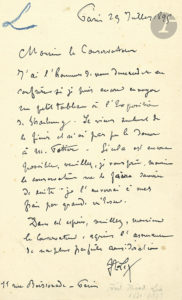 L
Paris 29 Juillet 1895
Monsieur le Conservateur
J'ai l'honneur de vous demander en
confiance si je puis encore envoyer
un petit tableau à l'Exposition
de Strasbourg. Je viens seulement de
le finir et n'ai pas pu le donner
à M.
Si cela est encore
possible, veuillez, je vous prie, monsieur
le conservateur me le faire savoir
de suite, je l'enverrai à mes
frais par grande vitesse.
Dans cet espoir, veuillez, monsieur
le Conservateur, agréer l'assurance
de ma plus parfaite considération
11 rue Boissonade - Paris